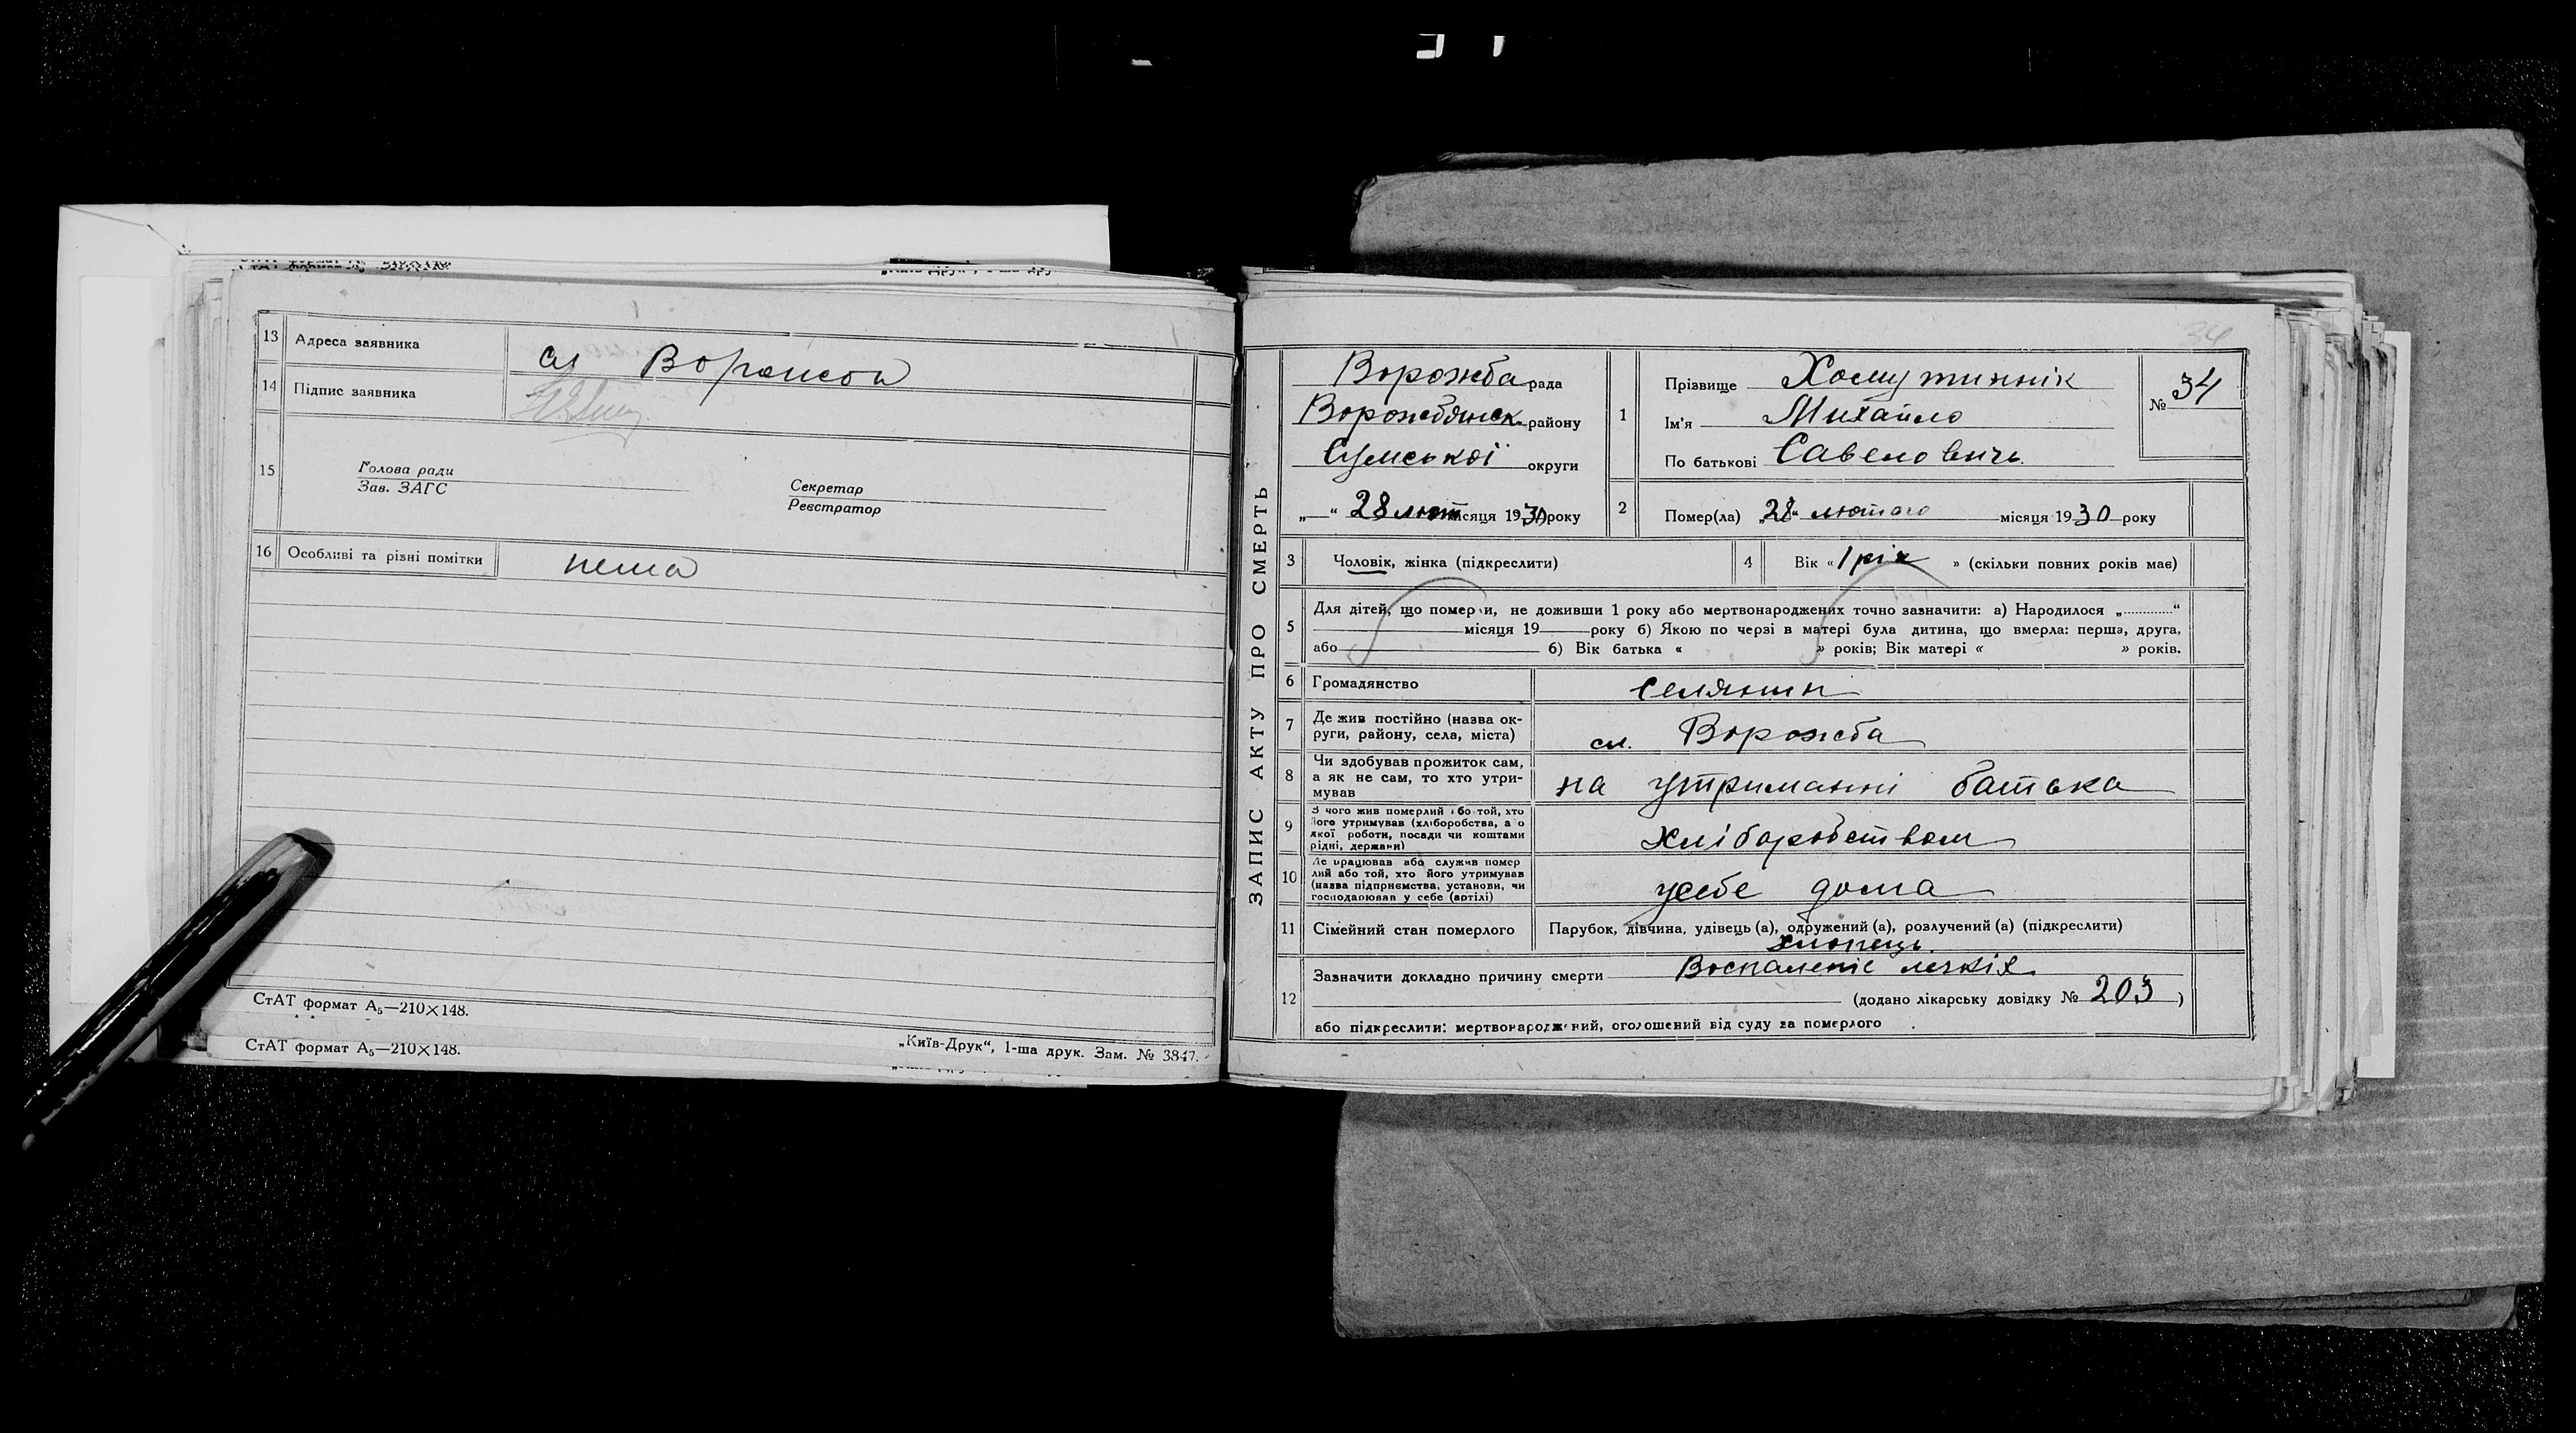 13 Адреса заявника сл Ворожба
14 Підпис заявника
15 Голова ради
Зав. ЗАГС
Секретар
Реєстратор
16 Особливі та різні помітки нема
СтАТ формат А₅—210×148.
СтАТ формат А₅—210×148.
„Київ-Друк“, 1-ша друк. Зам. № 3847.
34
ЗАПИС АКТУ ПРО СМЕРТЬ
Ворожба рада
Ворожбянск району
Сумської округи
„ “ 28 лют місяця 1930 року
1 Прізвище Хомутиннік
Ім'я Михайло
По батькові Савелович
№ 34
2 Помер(ла) „28“ лютого місяця 1930 року
3 Чоловік, жінка (підкреслити)
4 Вік « 1 рік » (скільки повних років має)
5 Для дітей, що померли, не доживши 1 року або мертвонароджених точно зазначити: а) Народилося „............“
місяця 19 року б) Якою по черзі в матері була дитина, що вмерла: перша, друга,
або б) Вік батька « » років; Вік матері « » років.
6 Громадянство селянин
7 Де жив постійно (назва ок-
руги, району, села, міста) сл. Ворожба
8 Чи здобував прожиток сам,
а як не сам, то хто утри-
мував на утриманні батька
9 З чого жив померлий або той, хто
його утримував (хліборобства, а о
якої роботи, посади чи коштами
рідні, держави) хліборобством
10 Де працював або служив помер
лий або той, хто його утримував
(назва підприємства, установи, чи
господарював у себе (артілі) усебе дома
11 Сімейний стан померлого Парубок, дівчина, удівець (а), одружений (а), розлучений (а) (підкреслити)
хлопець
12 Зазначити докладно причину смерти Воспаленіе легкіх
(додано лікарську довідку № 203)
або підкреслити: мертвонароджений, оголошений від суду за померлого